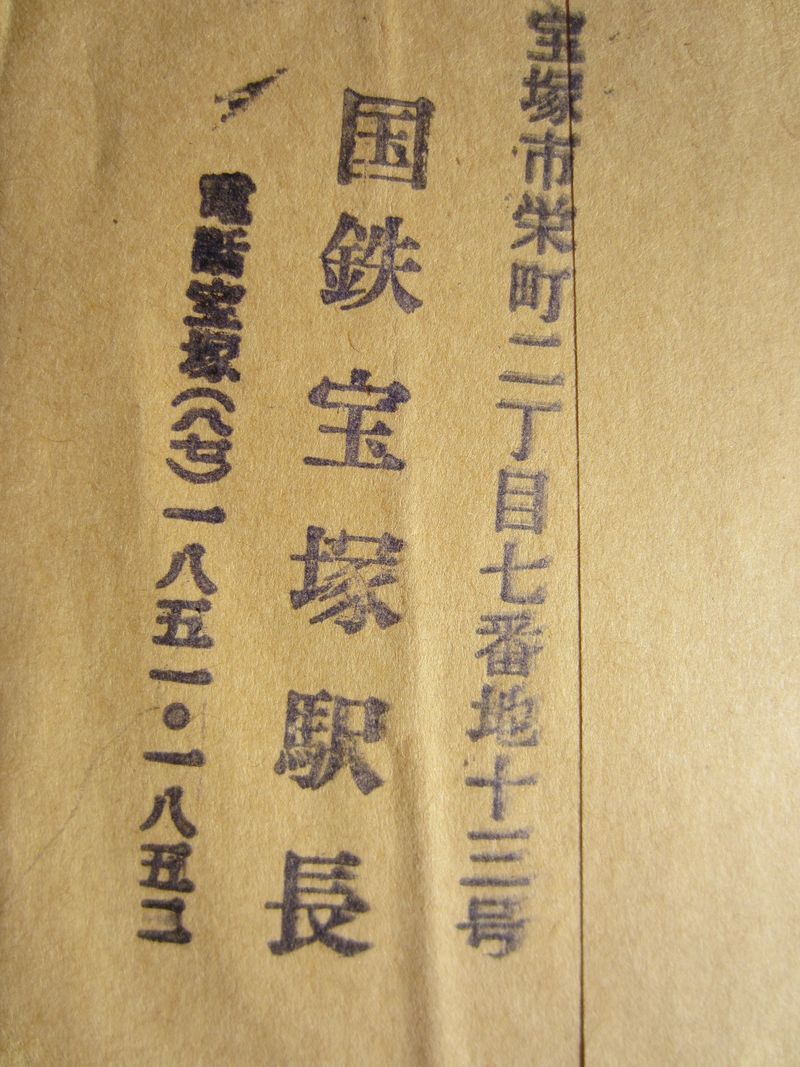 宝塚市栄町二丁目七番地十三号
国鉄宝塚駅長
電話宝塚(八七)一八五一・一八五二